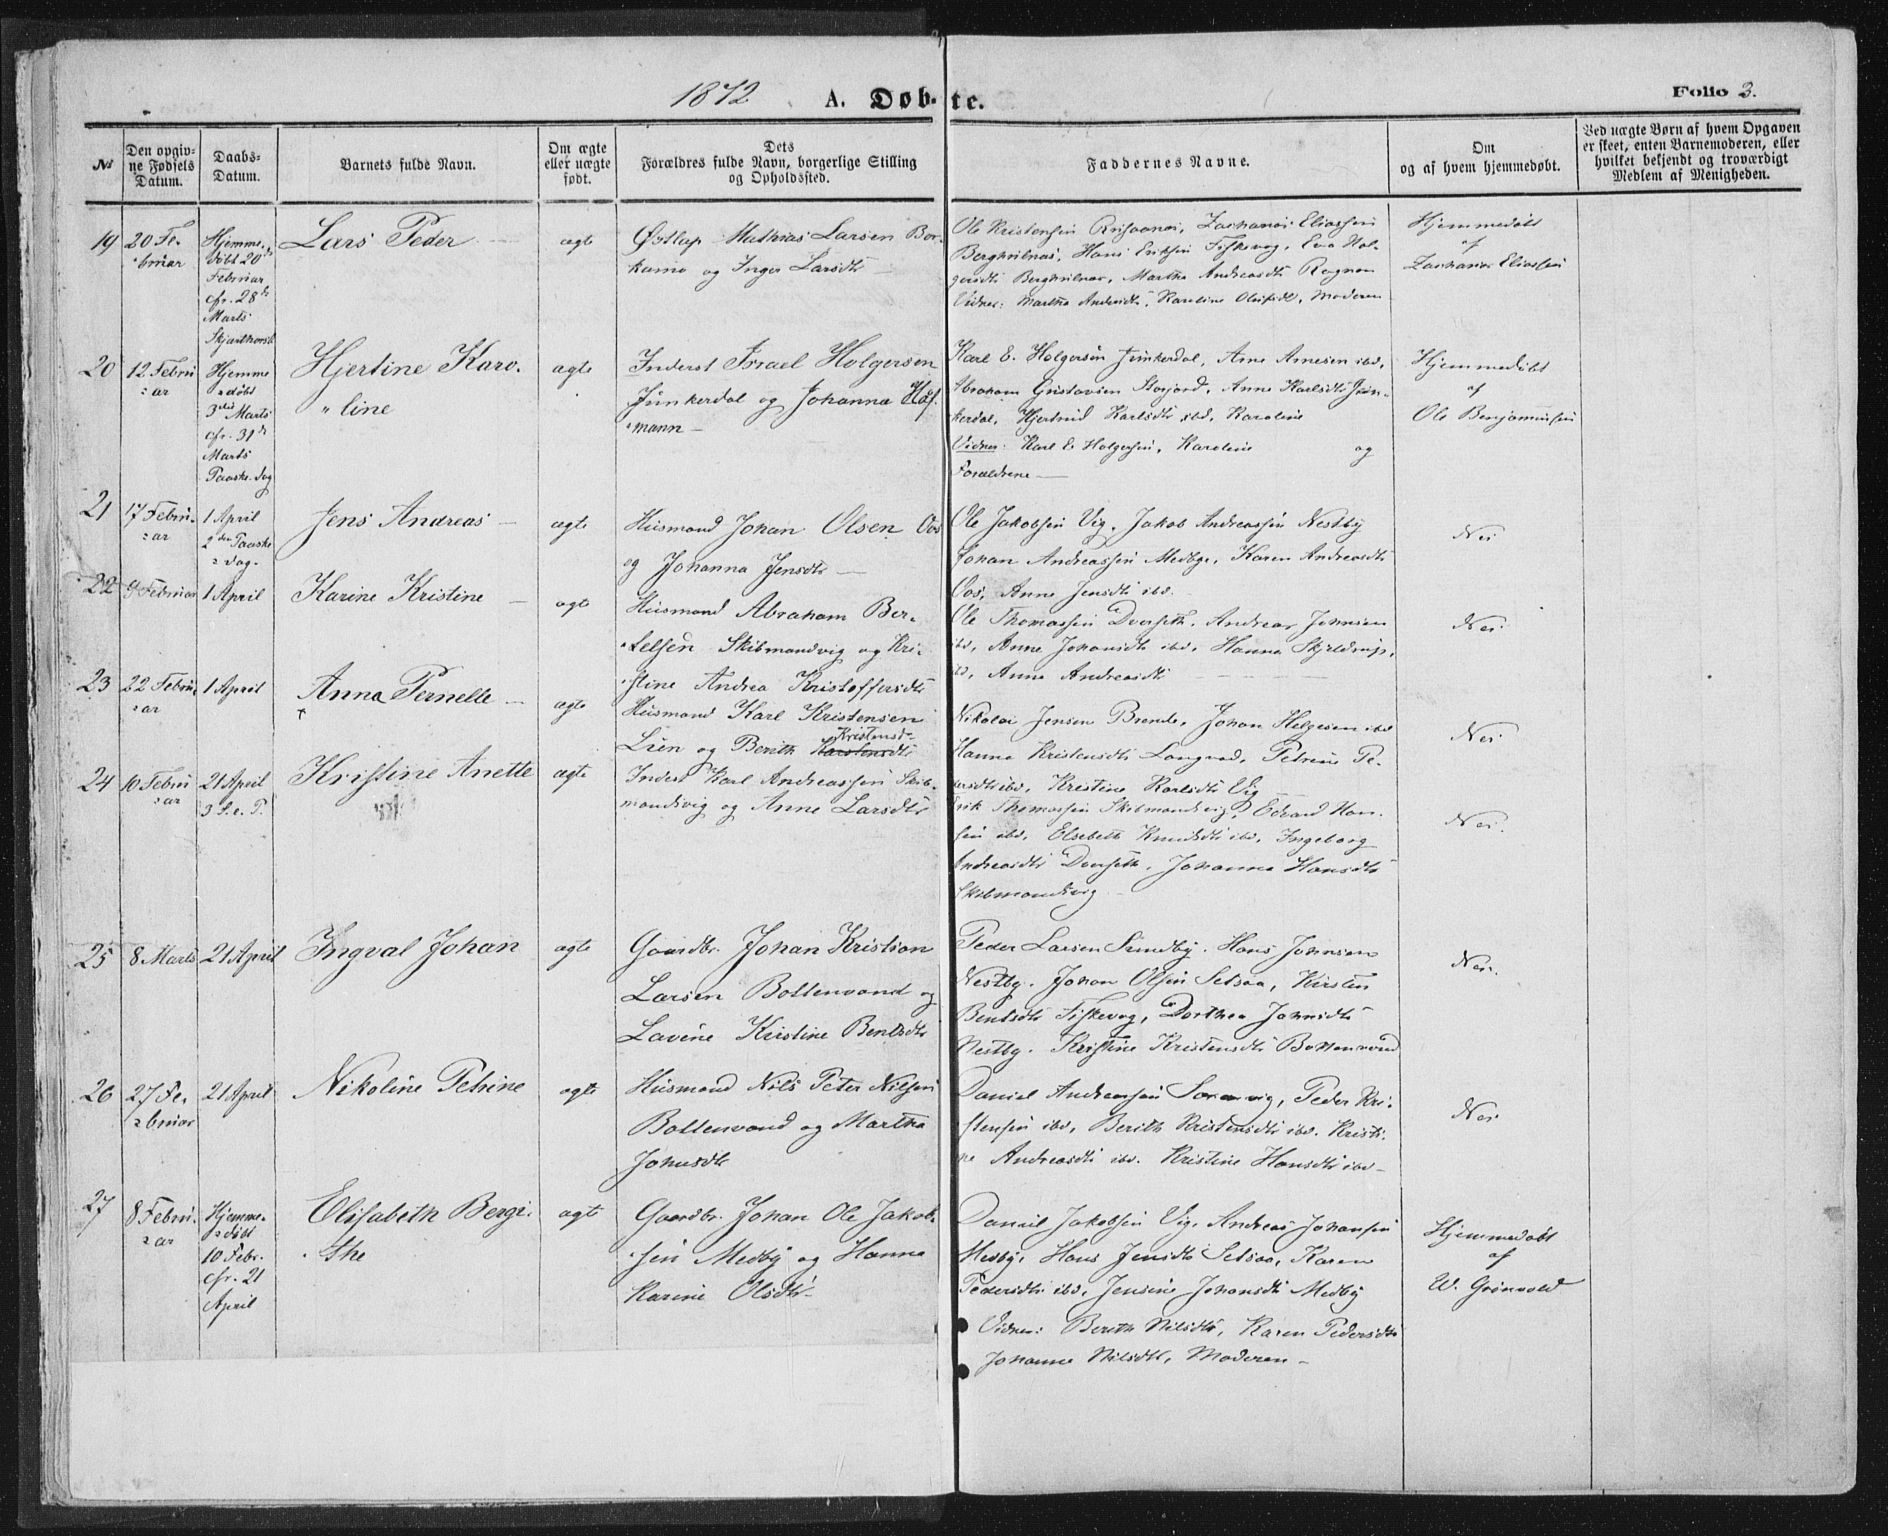 1872 A. Døbte. Folio 3.
No
Den opgivne Fødsels Datum.
Daabs-Datum.
Barnets fulde Navn.
Om ægte eller uægte født.
Dets Forældres fulde Navn, borgerlige Stilling og Opholdssted.
Faddernes Navne.
Om og af hvem hjemmedøbt.
Ved uægte Børn af hvem Opgaven er skeet, enten Barnemoderen, eller hvilket bekjendt og troværdigt Medlem af Menigheden.
19
20 Fe-
bruar
Hjemme-
døbt 20de
Februar
cfr. 28de
Marts
Lars Peder
ægte
Østlap Mathias Larsen Bor-
kamo og Inger Larsdtr
Ole Kristensen Zacharias Eliassen
Berghulnæs, Hans Eriksen Fiskevog, Eva Hol-
gersdtr Berghulnæs, Martha Andreasdtr Rognan
Vidner: Martha Andrsdtr, Karoline Olufsdtr, Moderen
Hjemmedøbt
af
Zacharias Eliassen
20
12 Febru
ar
Hjemme
døbt
3die Marts
cfr. 31de
Marts
Paaskedag
Hjertine Karo-
line
ægte
Inderst Israel Holgersen
Junkerdal og Johanna Hof-
mann
Karl E. Holgersen Junkerdal, Arne Arnesen ibd,
Abraham Gustavsen Storjord, Anne Karlsdtr Jun-
kerdal, Hjertrud Karlsdtr ibd, Karoline
Vidner: Karl E Holgersen, Karoline og
Forældrene
Hjemmedøbt
af
Ole Benjaminsen
21
17 Febru-
ar
1 April
2den Paaske
dag.
Jens Andreas
ægte
Husmand Johan Olsen Os
og Johanna Jensdtr
Ole Jakobsen Vig, Jakob Andreassen Nestby
Johan Andreassen Medby, Karen Andreasdtr
Os, Anne Jensdtr ibd.
Nei
22
9 Februar
1 April
Karine Kristine
ægte
Husmand Abraham Ber-
telsen Skibmandvig og Kri-
stine Andrea Kristoffersdtr
Ole Thomassen Dverseth, Andreas Johnsen
ibd, Anne Johansdtr ibd, Hanna Skjeldrup,
ibd, Anne Andreasdtr
Nei
23
22 Febru
ar
1 April
Anna Pernelle
ægte
Husmand Karl Kristensen
Kristensd-
Lien og Berith Karstensdtr
Nikolai Jensen Brende, Johan Helgesen ibd
Hanna Kristensdtr Langvad, Petrine Pe-
dersdtr ibd, Kristine Karlsdtr Vig
Nei
24
10 Febru
ar
21 April
3 S. e. P.
Kristine Anette
ægte
Inderst Karl Andreassen Skib-
mandvig og Anne Larsdtr
Erik Thomassen Skibmandvig, Edvard Han-
sen ibd, Elsebeth Knudsdtr ibd, Ingeborg
Andreasdtr Dverseth, Johanna Hansdtr
Skibmandvig
Nei.
25
8 Marts
21 April
Ingval Johan
ægte
Gaardbr. Johan Kristian
Larsen Bottenvand og
Lavine Kristine Bentsdtr
Peder Larsen Sundby. Hans Johnsen
Nestby. Johan Olsen Setsaa, Kirsten
Bentsdtr Fiskevog, Dorthea Johnsdtr
Nestby. Kristine Kristensdtr Bottenvand
Nei.
26
27 Fe-
bruar
21 April
Nikoline Petrine
ægte
Husmand Nils Peter Nilsen
Bottenvand og Martha
Johnsdtr
Daniel Andreassen Peder Kri-
stensen ibd, Berith Kristensdtr ibd. Kristi-
ne Andreasdtr ibd. Kristine Hansdtr ibd
Nei
27
8 Febru-
ar
Hjemme-
døbt
10 Febr.
cfr. 21
April
Elisabeth Bergi-
the
ægte
Gaardbr. Johan Ole Jakob-
sen Medby og Hanna
Karine Olsdtr.
Daniel Jakobsen Vig, Andreas Johansen
Medby, Hans Jensdtr Setsaa, Karen
Pedersdtr ibd, Jensine Johansdtr Medby
Vidner: Berith Nilsdtr, Karen Pedersdtr
Johanne Nilsdtr, Moderen
Hjemmedøbt
af
W. Grønvold